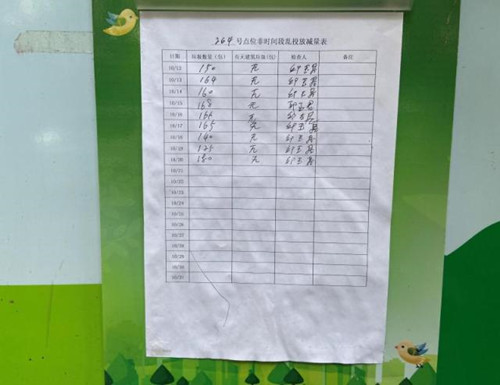 264号点位非时间段乱投放减量表
日期 垃圾数量(包) 有无建筑垃圾(包) 检查人 备注
10/12 150 无
10/13 164 无
10/14 160 无
10/15 168 无
10/16 166 无
10/17 165 无
10/18 140 无
10/19 125 无
10/20 130 无
10/21
10/22
10/23
10/24
10/25
10/26
10/27
10/28
10/29
10/30
10/31